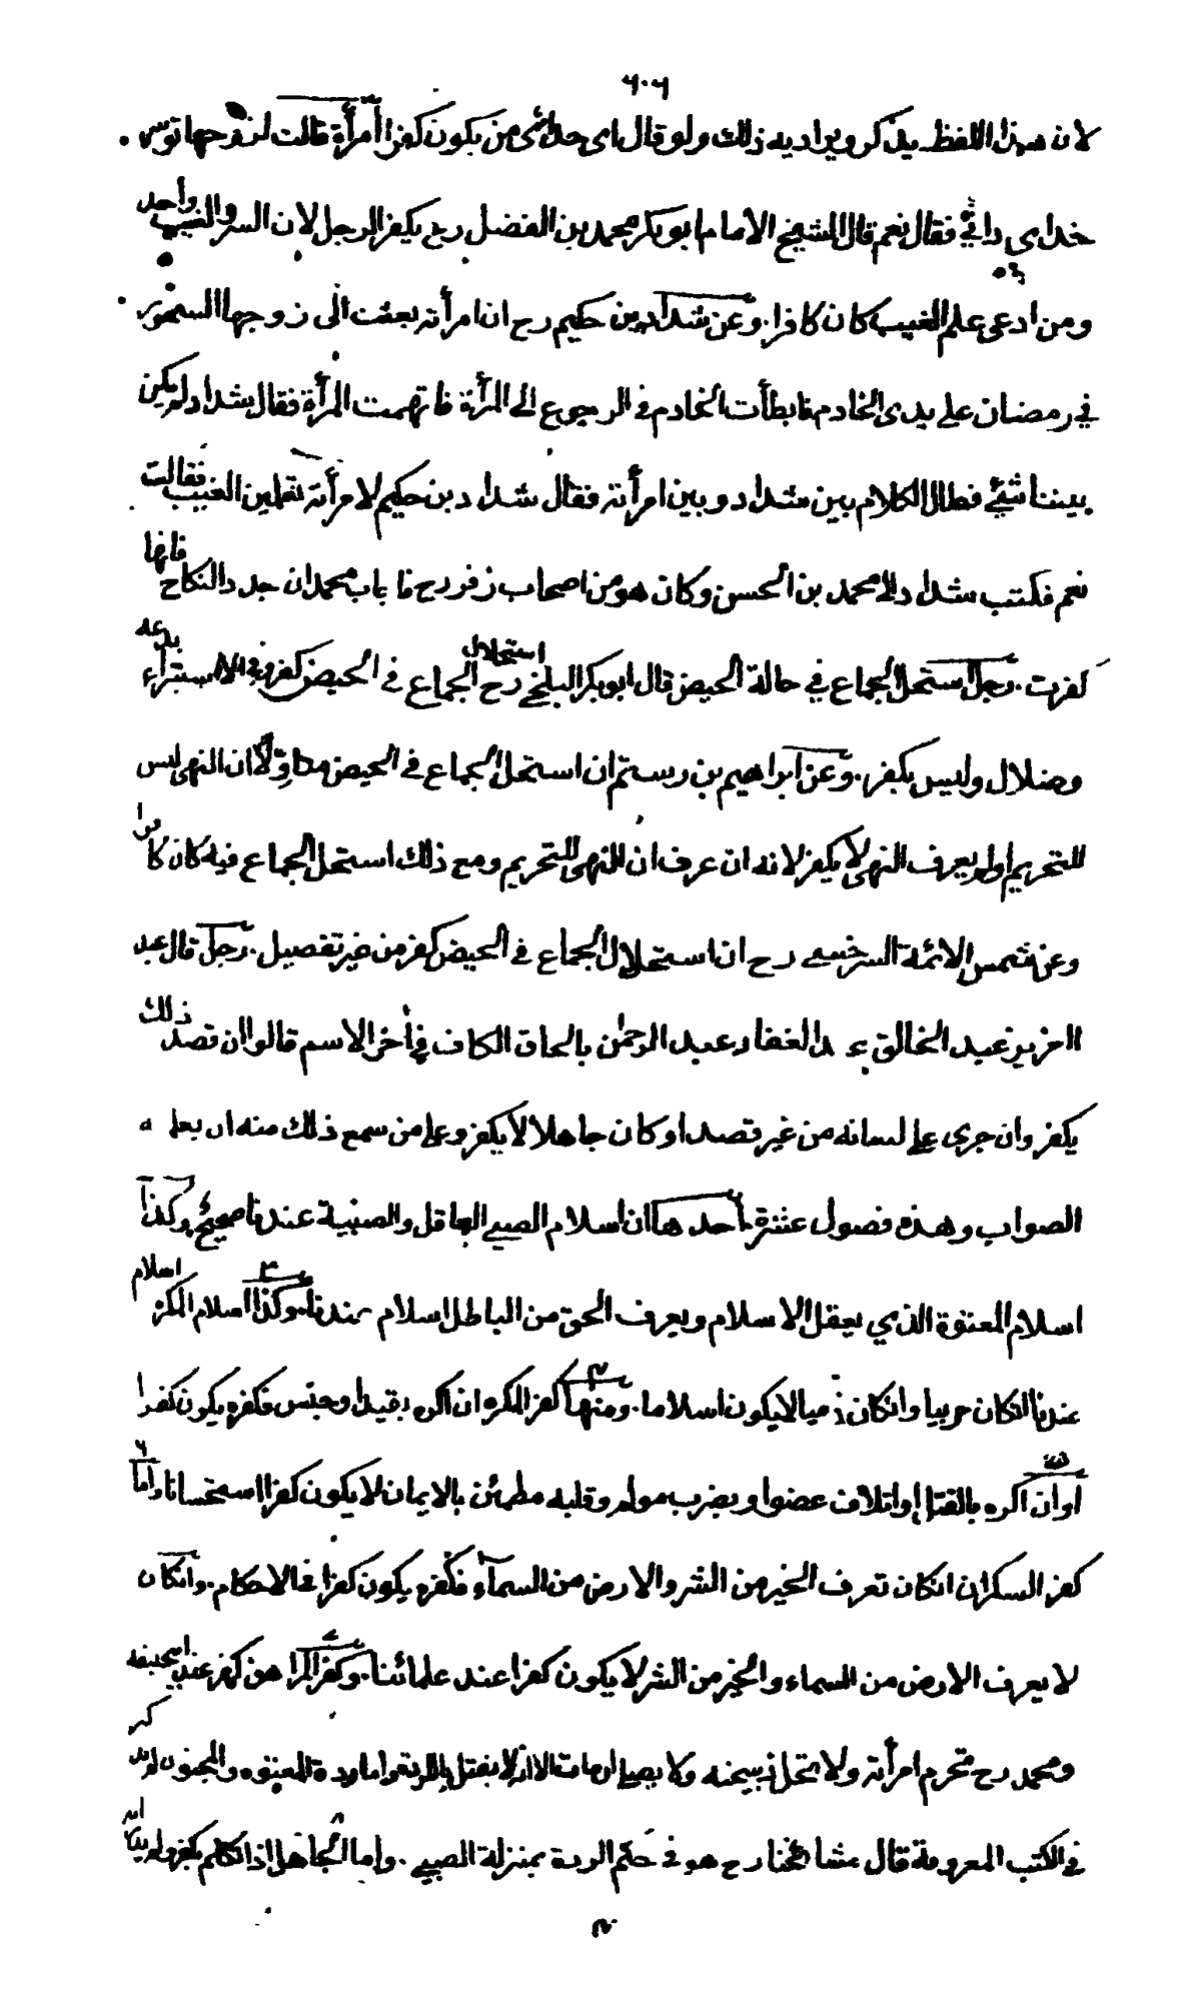 ٦٠٦
لان هذا اللفظ يذكر ويراد به ذلك ولو قال اى خداى من يكون كفرا امرأة قالت لزوجها توسر
خداى دانى فقال نعم قال الشيخ الامام ابو بكر محمد بن الفضل رح يكفر الرجل لان السر والغيب واحد
ومن ادعى علم الغيب كان كافرا . وعن شداد بن حكيم رح ان امرأته بعثت الى زوجها السحور
في رمضان على يدى الخادم فابطأت الخادم في الرجوع الى المرأة فاتهمت المرأة فقال شداد لم يكن
بيننا شئ فطال الكلام بين شداد وبين امرأته فقال شداد بن حكيم لامرأته تعلمين الغيب فقالت
نعم فكتب شداد الى محمد بن الحسن وكان هو من اصحاب زفر رح فاجاب محمد ان جدد النكاح فانها
كفرت . رجل استحل الجماع في حالة الحيض قال ابو بكر البلخي رح استحلال الجماع في الحيض كفر وفي الاستبراء بدعة
وضلال وليس بكفر . وعن ابراهيم بن رستم ان استحل الجماع في الحيض متاولا ان النهي ليس
للتحريم او لم يعرف النهي لا يكفر لانه ان عرف ان النهي للتحريم ومع ذلك استحل الجماع فيه كان كافرا
وعن شمس الائمة السرخسي رح ان استحلال الجماع في الحيض كفر من غير تفصيل . رجل قال عبد
العزيز عبد الخالق عبد الغفار عبد الرحمن بالحاق الكاف في آخر الاسم قالوا ان قصد ذلك
يكفر وان جرى على لسانه من غير قصد او كان جاهلا لا يكفر وعلى من سمع ذلك منه ان يعلمه
الصواب وهذه فصول عشرة احدها ان اسلام الصبي العاقل والصبية عندنا صحيح وكذا
اسلام المعتوه الذي يعقل الاسلام ويعرف الحق من الباطل اسلام عندنا . وكذا اسلام المكره اسلام
عندنا ان كان حربيا وان كان ذميا لا يكون اسلاما . ومنها كفر المكره ان اكره بقيد او حبس فكفره يكون كفرا
او ان اكره بالقتل او اتلاف عضو او بضرب مولم وقلبه مطمئن بالايمان لا يكون كفرا استحسانا واما
كفر السكران ان كان تعرف الخير من الشر والارض من السماء فكفره يكون كفرا في الاحكام . وان كان
لا يعرف الارض من السماء والخير من الشر لا يكون كفرا عند علمائنا . وكفر المراهق كفر عند ابي حنيفة
ومحمد رح تحرم امرأته ولا تحل ذبيحته ولا يصلى ان مات الا انه لا يقتل بالردة واما ردة المعتوه والمجنون لم يذكر
في الكتب المعروفة قال مشائخنا رح هو في حكم الردة بمنزلة الصبي . واما الجاهل اذا تكلم بكفر ولم يدر انه